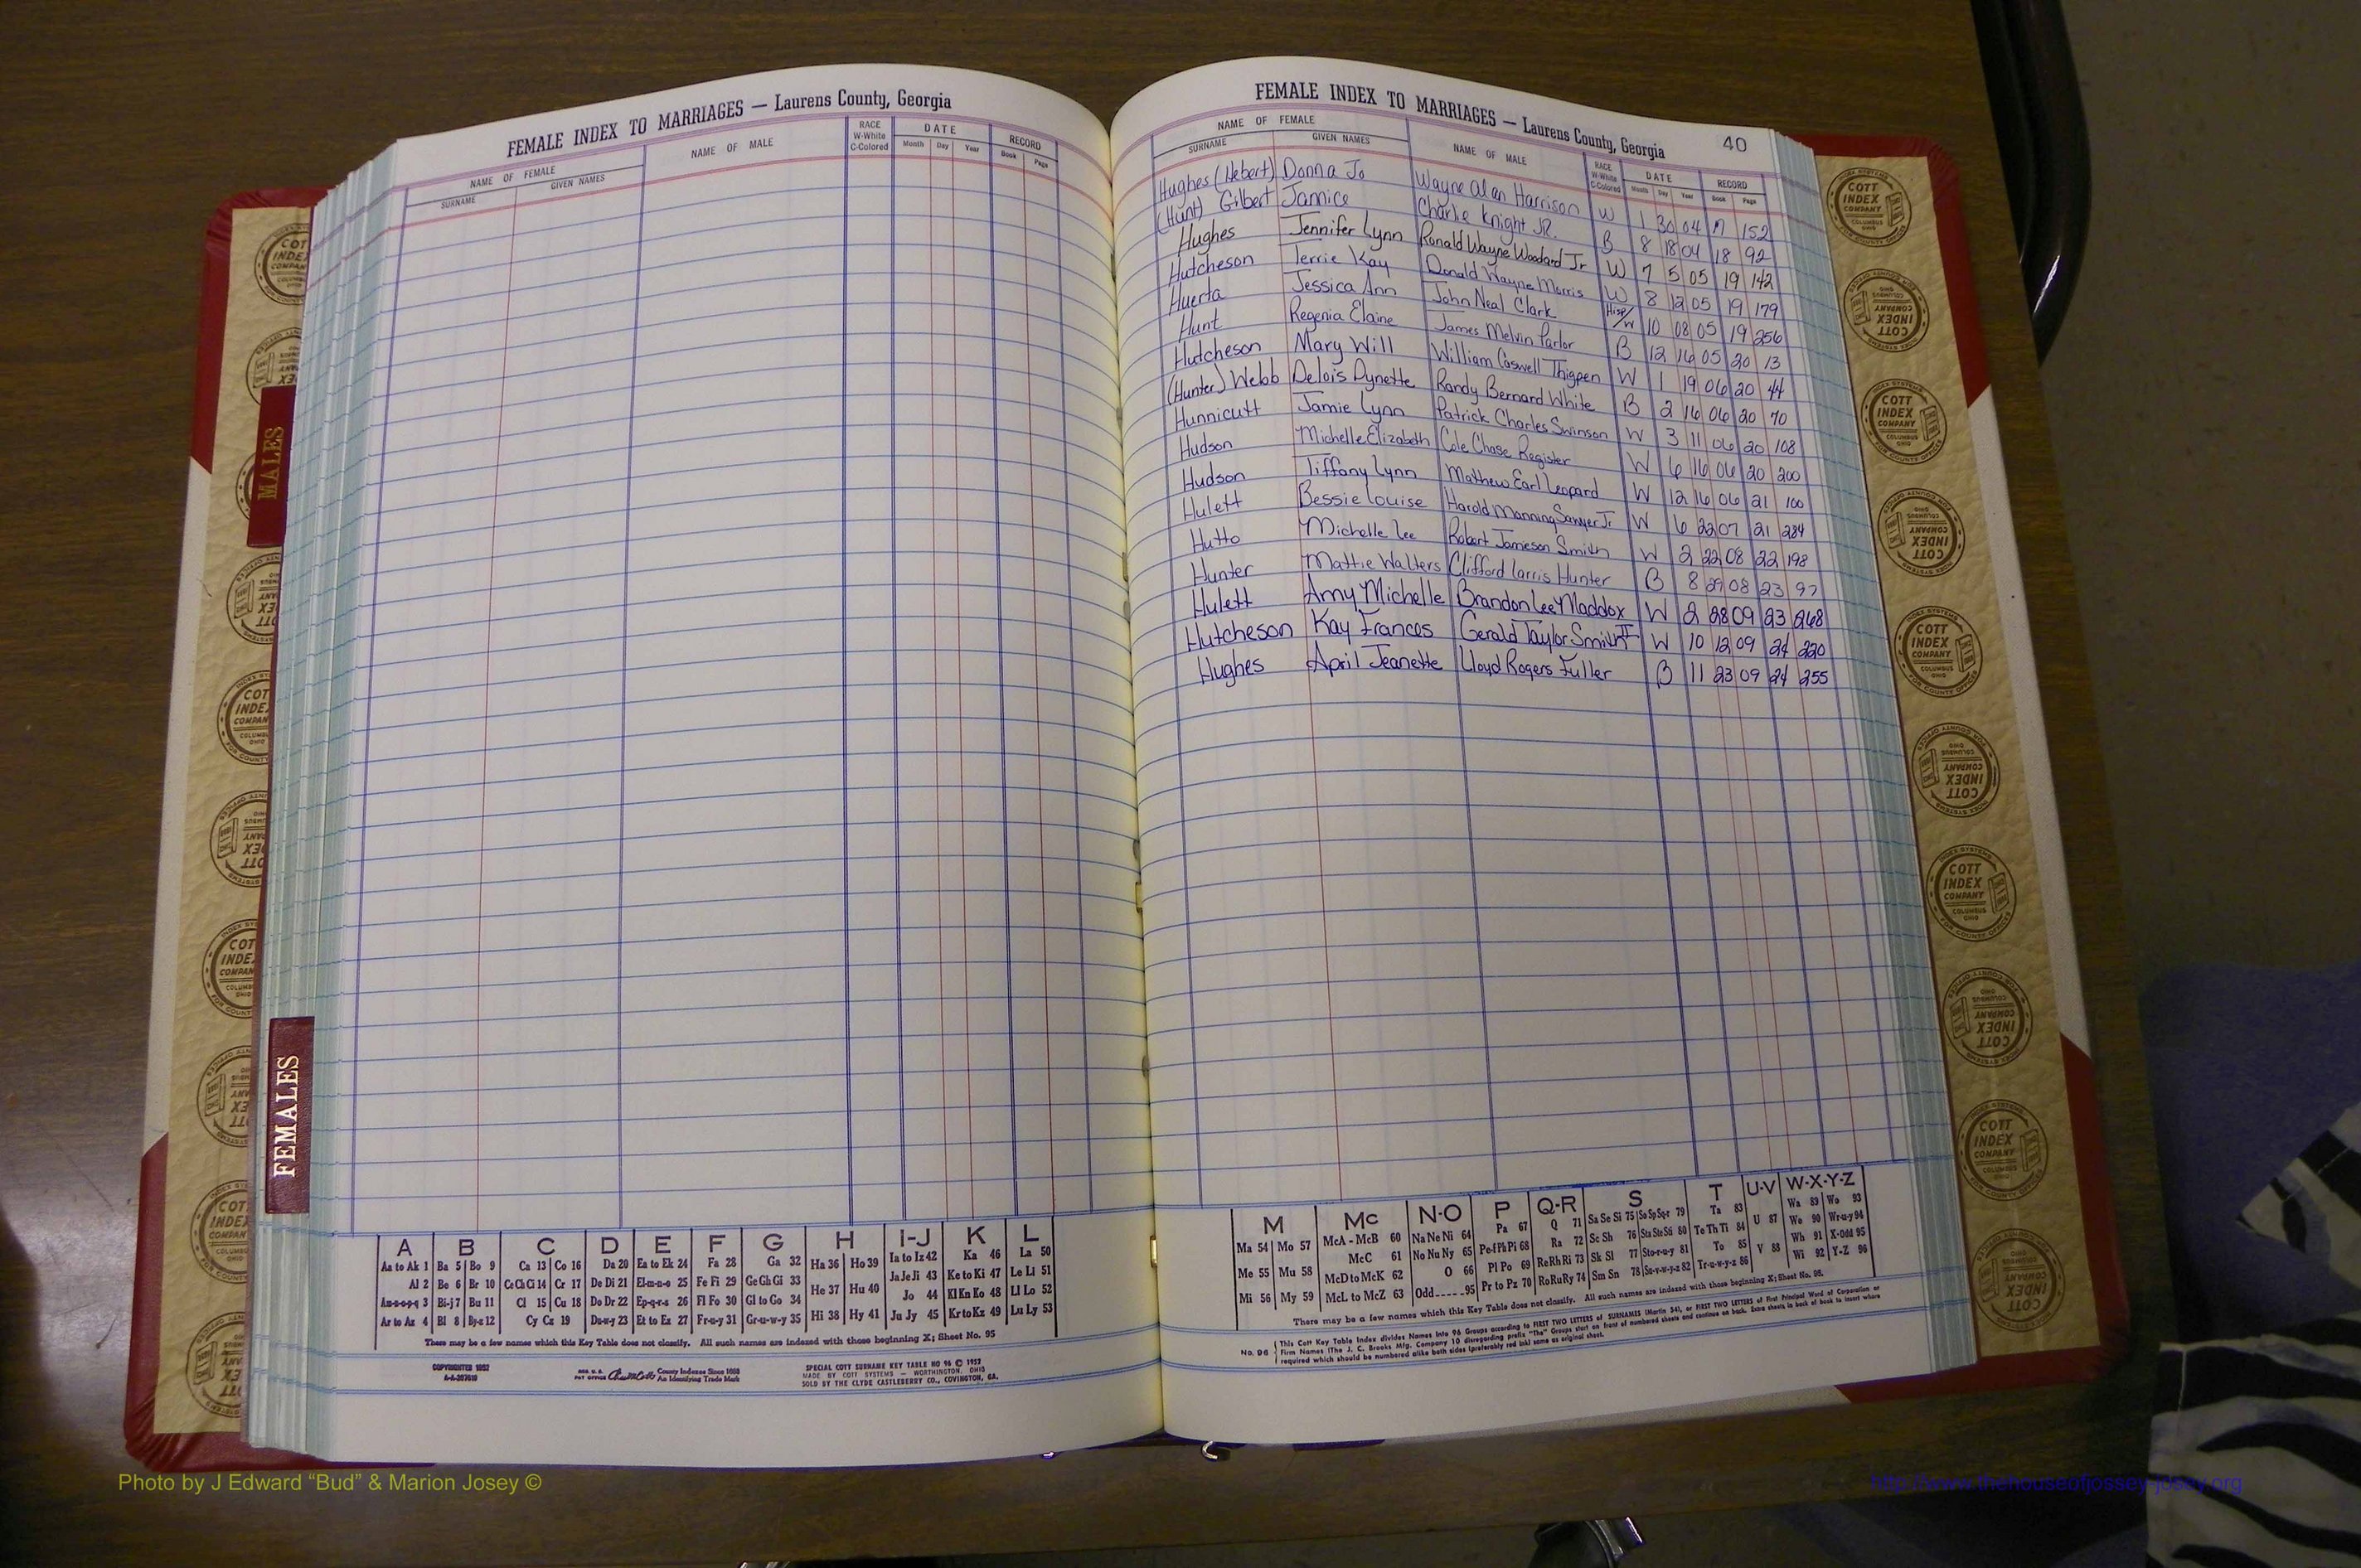 FEMALE INDEX TO MARRIAGES — Laurens County, Georgia
NAME OF FEMALE
SURNAME GIVEN NAMES
NAME OF MALE
RACE
W-White
C-Colored
DATE
Month Day Year
RECORD
Book Page
MALES
FEMALES
A B C D E F G H I-J K L
Aa to Ak 1 Ba 5 Bo 9 Ca 13 Co 16 Da 20 Ea to Ek 24 Fa 28 Ga 32 Ha 36 Ho 39 Ia to Iz 42 Ka 46 La 50
Al 2 Be 6 Br 10 Ce Ch Ci 14 Cr 17 De Di 21 El-m-n-o 25 Fe Fi 29 Ge Gh Gi 33 He 37 Hu 40 Ja Je Ji 43 Ke to Ki 47 Le Li 51
An-o-p-q 3 Bi-j 7 Bu 11 Cl 15 Cu 18 Do Dr 22 Ep-q-r-s 26 Fl Fo 30 Gl to Go 34 Hi 38 Hy 41 Jo 44 Kl Kn Ko 48 Ll Lo 52
Ar to Az 4 Bl 8 By-z 12 Cy Cz 19 Du-w-y 23 Et to Ez 27 Fr-u-y 31 Gr-u-w-y 35 Ju Jy 45 Kr to Kz 49 Lu Ly 53
There may be a few names which this Key Table does not classify. All such names are indexed with those beginning X; Sheet No. 95
County Indexes Since 1888
An Identifying Trade Mark
SPECIAL COTT SURNAME KEY TABLE NO 96 © 1957
MADE BY COTT SYSTEMS — WORTHINGTON, OHIO
SOLD BY THE CLYDE CASTLEBERRY CO., COVINGTON, GA.
FEMALE INDEX TO MARRIAGES — Laurens County, Georgia 40
NAME OF FEMALE
SURNAME GIVEN NAMES
NAME OF MALE
RACE
W-White
C-Colored
DATE
Month Day Year
RECORD
Book Page
Hughes (Hebert) Donna Jo Wayne Alan Harrison W 1 30 04 17 152
(Hunt) Gilbert Jannice Charlie Knight JR. B 8 18 04 18 92
Hughes Jennifer Lynn Ronald Wayne Woodard Jr W 7 5 05 19 142
Hutcheson Terrie Kay Donald Wayne Morris W 8 12 05 19 179
Huerta Jessica Ann John Neal Clark Hisp/W 10 08 05 19 256
Hunt Regenia Elaine James Melvin Parlor B 12 16 05 20 13
Hutcheson Mary Will William Caswell Thigpen W 1 19 06 20 44
(Hunter) Webb Delois Dynette Randy Bernard White B 2 16 06 20 70
Hunnicutt Jamie Lynn Patrick Charles Swinson W 3 11 06 20 108
Hudson Michelle Elizabeth Cole Chase Register W 6 16 06 20 200
Hudson Tiffany Lynn Mathew Earl Leopard W 12 16 06 21 100
Hulett Bessie Louise Harold Manning Sawyer Jr W 6 22 07 21 284
Hutto Michelle Lee Robert Jameson Smith W 2 22 08 22 198
Hunter Mattie Walters Clifford Larris Hunter B 8 29 08 23 97
Hulett Amy Michelle Brandon Lee Maddox W 2 28 09 23 268
Hutcheson Kay Frances Gerald Taylor Smith II W 10 12 09 24 220
Hughes April Jeanette Lloyd Rogers Fuller B 11 23 09 24 255
M Mc N-O P Q-R S T U-V W-X-Y-Z
Ma 54 Mo 57 McA - McB 60 Na Ne Ni 64 Pa 67 Q 71 Sa Se Si 75 So Sp Sq-r 79 Ta 83 U 87 Wa 89 Wo 93
Me 55 Mu 58 McC 61 No Nu Ny 65 Pe-f Ph Pi 68 Ra 72 Sc Sh 76 Sta Ste Sti 80 Te Th Ti 84 V 88 We 90 Wr-u-y 94
Mi 56 My 59 McD to McK 62 O 66 Pl Po 69 Re Rh Ri 73 Sk Sl 77 Sto-r-u-y 81 To 85 Wh 91 X-Odd 95
McL to McZ 63 Odd 95 Pr to Pz 70 Ro Ru Ry 74 Sm Sn 78 Su-v-w-y-z 82 Tr-u-w-y-z 86 Wi 92 Y-Z 96
There may be a few names which this Key Table does not classify. All such names are indexed with those beginning X; Sheet No. 95.
No. 96
This Cott Key Table Index divides Names into 96 Groups according to FIRST TWO LETTERS of SURNAMES (Martin 54), or FIRST TWO LETTERS of First Principal Word of Corporation or
Firm Names (The J. C. Brooks Mfg. Company 10 disregarding prefix "The" Groups start on front of numbered sheets and continue on back. Extra sheets in back of book to insert where
required which should be numbered alike both sides (preferably red ink) same as original sheet.
COTT
INDEX
COMPANY
COLUMBUS
OHIO
INDEX SYSTEMS
FOR COUNTY OFFICES
Photo by J Edward “Bud” & Marion Josey ©
http://www.thehouseofjossey-josey.org